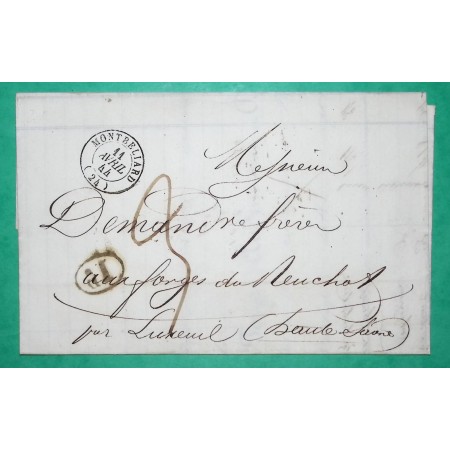 MONTBELIARD
11
AVRIL
44
(24)
Messieurs
Demandre frères
aux forges du Neuchot
par Luxeuil (Haute Saône)
3